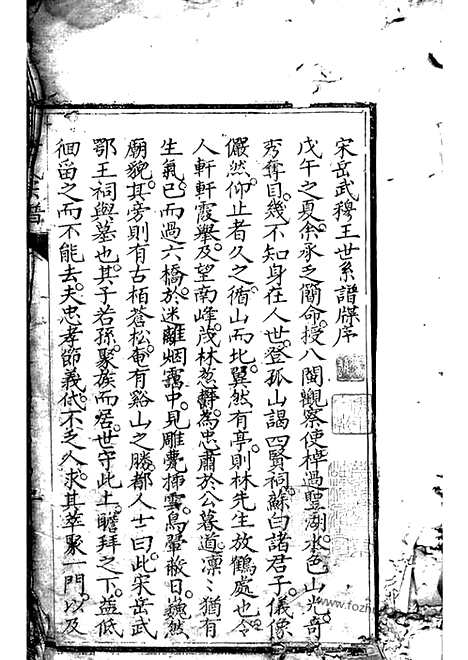 宋岳武穆王世系譜牒序
戊午之夏余承乏簡命授八閩觀察使棹過聖湖水色山光奇
秀奪目幾不知身在人世登孤山謁四賢祠蘇白諸君子儀像
儼然仰止者久之循山而北翼然有亭則林先生放鶴處也令
人軒軒霞舉及望南峰茂林葱鬱為忠肅于公墓道凜凜猶有
生氣已而過六橋於迷離烟靄中見雕甍插雲鳥翬蔽日巍然
廟貌其旁則有古栢蒼松奄有谿山之勝都人士曰此宋岳武
鄂王祠與墓也其子若孫聚族而居世守此土瞻拜之下益低
徊留之而不能去夫忠孝節義代不乏人求其萃聚一門以及
www.fozhu